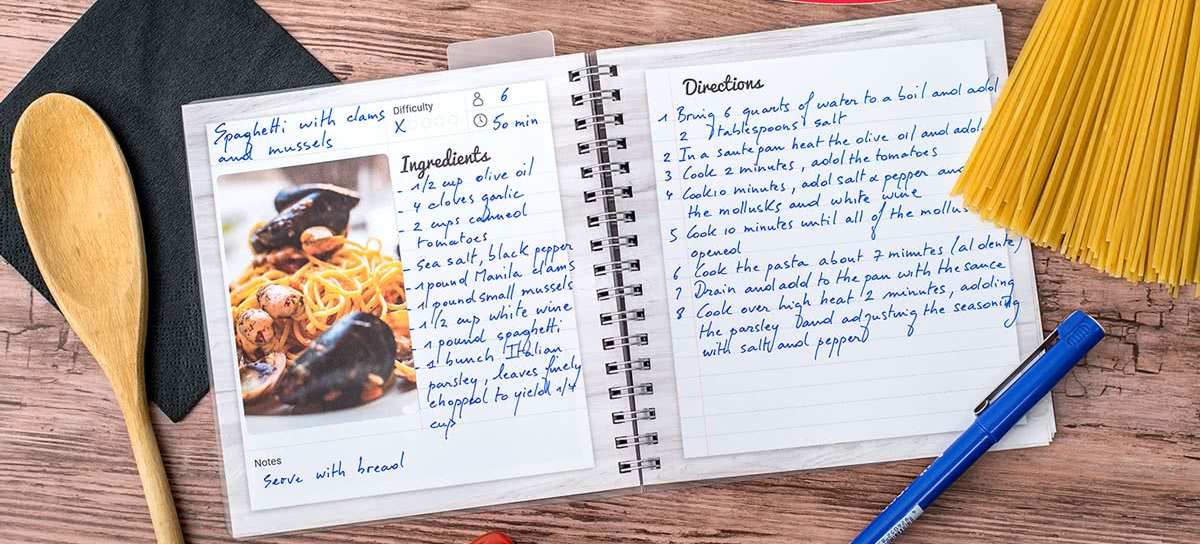 Spaghetti with clams
and mussels
Difficulty
X
6
50 min
Ingredients
- 1/2 cup olive oil
- 4 cloves garlic
- 2 cups canned
tomatoes
- Sea salt, black pepper
- 1 pound Manila clams
- 1 pound small mussels
- 1/2 cup white wine
- 1 pound spaghetti
- 1 bunch Italian
parsley, leaves finely
chopped to yield 1/4
cup
Notes
Serve with bread
Directions
1 Bring 6 quarts of water to a boil and add
2 tablespoons salt
2 In a saute pan heat the olive oil and add
3 Cook 2 minutes, add the tomatoes
4 Cook 10 minutes, add salt & pepper and
the mollusks and white wine
5 Cook 10 minutes until all of the
opened
6 Cook the pasta about 7 minutes (al dente)
7 Drain and add to the pan with the sauce
8 Cook over high heat 2 minutes, adding
the parsley and adjusting the seasoning
with salt and pepper